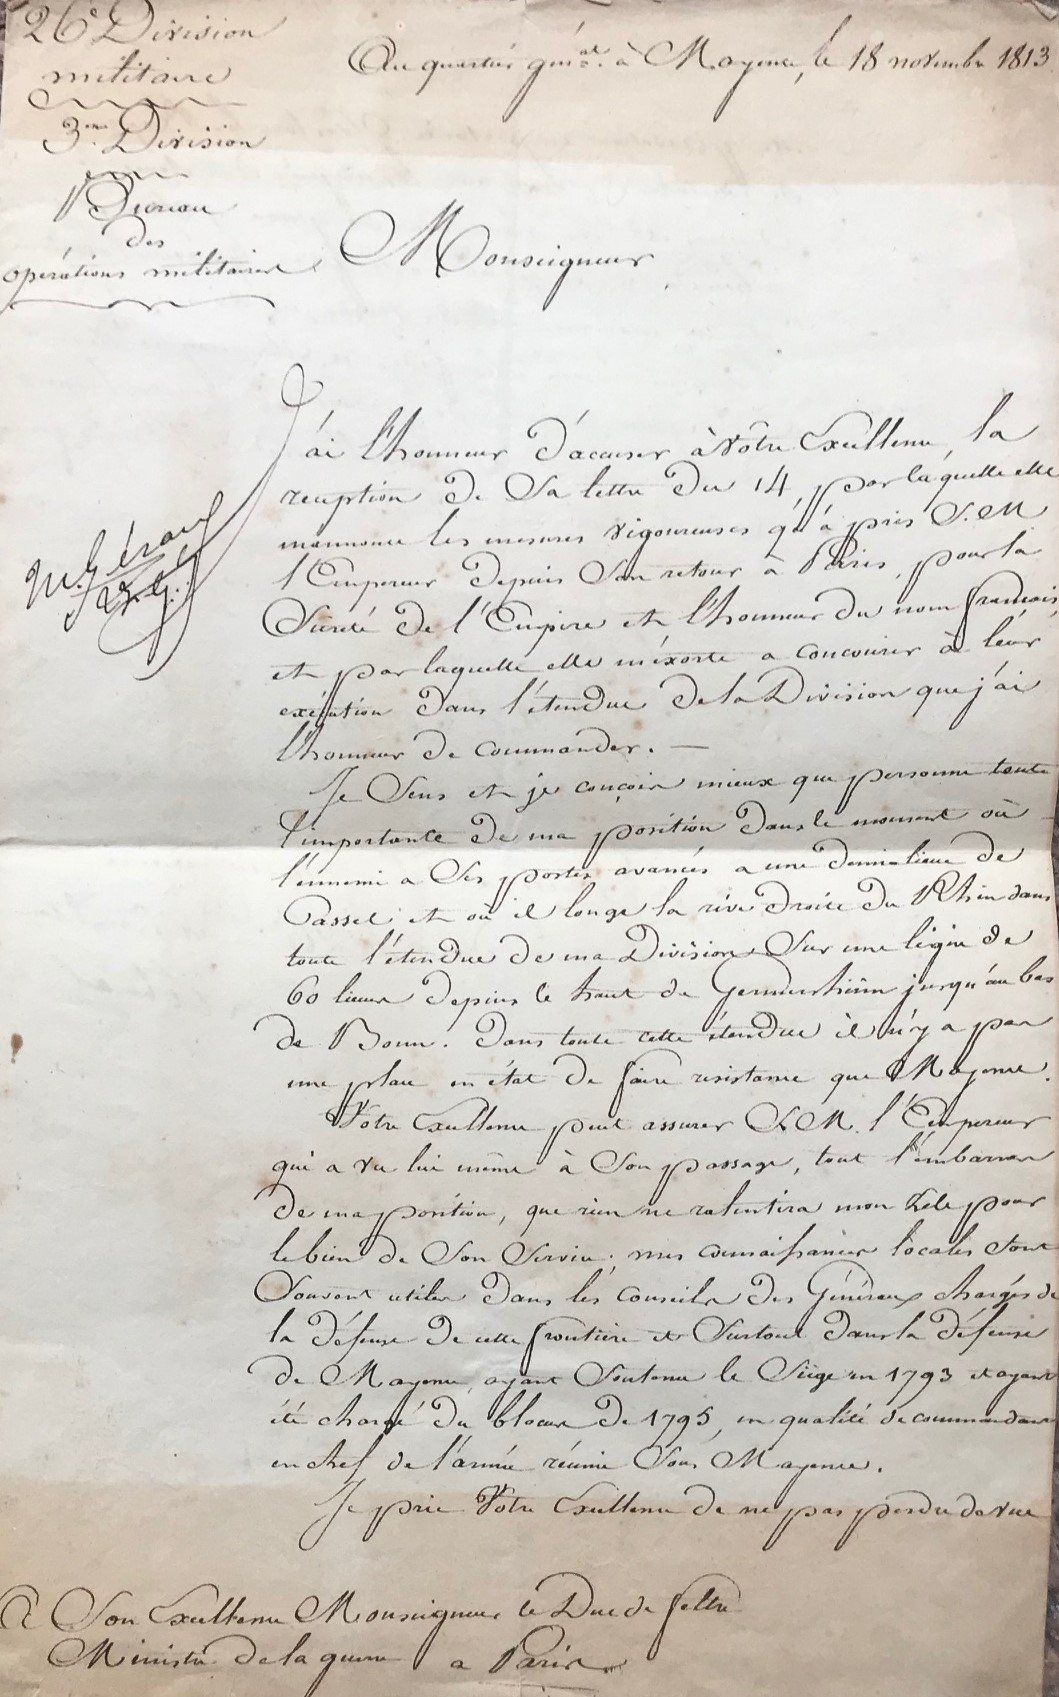 26e Division
militaire
3me Division
Bureau
des
opérations militaires
Au quartier génal. à Mayence, le 18 novembre 1813
Monseigneur
J'ai l'honneur d'accuser à Votre Excellence, la
reception de Sa lettre du 14, par laquelle elle
m'annonce les mesures vigoureuses qu'à pris S. M.
l'Empereur depuis Son retour à Paris, pour la
Sureté de l'Empire et l'honneur du nom francais,
et par laquelle elle m'éxorte a concourir à leur
exécution dans l'étendue de la Division que j'ai
l'honneur de commander. —
Je Sens et je conçois mieux que personne toute
l'importance de ma position dans le moment où
l'ennemi a Ses postes avancés a une demi-lieue de
Cassel et où il longe la rive droite du Rhin dans
toute l'étendue de ma Division Sur une ligne de
60 lieues depuis le haut de jusqu'au bas
de Bonn. Dans toute cette étendue il n'y a pas
une place en état de faire resistance que Mayence.
Votre Excellence peut assurer S. M. l'Empereur
qui a vu lui même à Son passage, tout l'embarras
de ma position, que rien ne ralentira mon Zele pour
le bien de Son Service; mes connaissances locales Sont
Souvent utiles dans les Conseils des Généraux chargés de
la défense de cette frontière et Surtout dans la défense
de Mayence, ayant Soutenu le Siège en 1793 et ayant
été chargé du blocus de 1795, en qualité de commandant
en chef de l'armée réunie Sous Mayence.
Je prie Votre Excellence de ne pas perdre de vue
M. Gérard
A Son Excellence Monseigneur le Duc de feltre
Ministre de la guerre a Paris